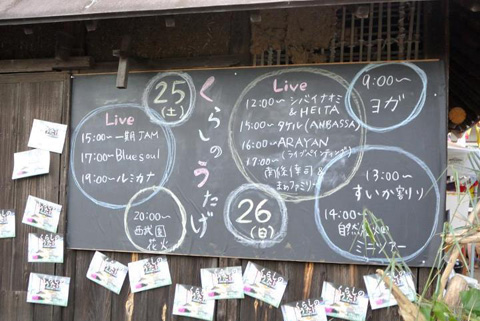 くらしのうたげ
25
(土)
Live
15:00〜 一期JAM
17:00〜 Bluesoul
19:00〜 ルミカナ
20:00〜
西武園
花火
26
(日)
Live
12:00〜 シバイナオミ
& HEITA
15:00〜 タケル(AMBASSA)
16:00〜 ARAYAN
(ライブペインティング)
17:00〜
&
9:00〜
ヨガ
13:00〜
すいか割り
14:00〜
自然
ミニツアー